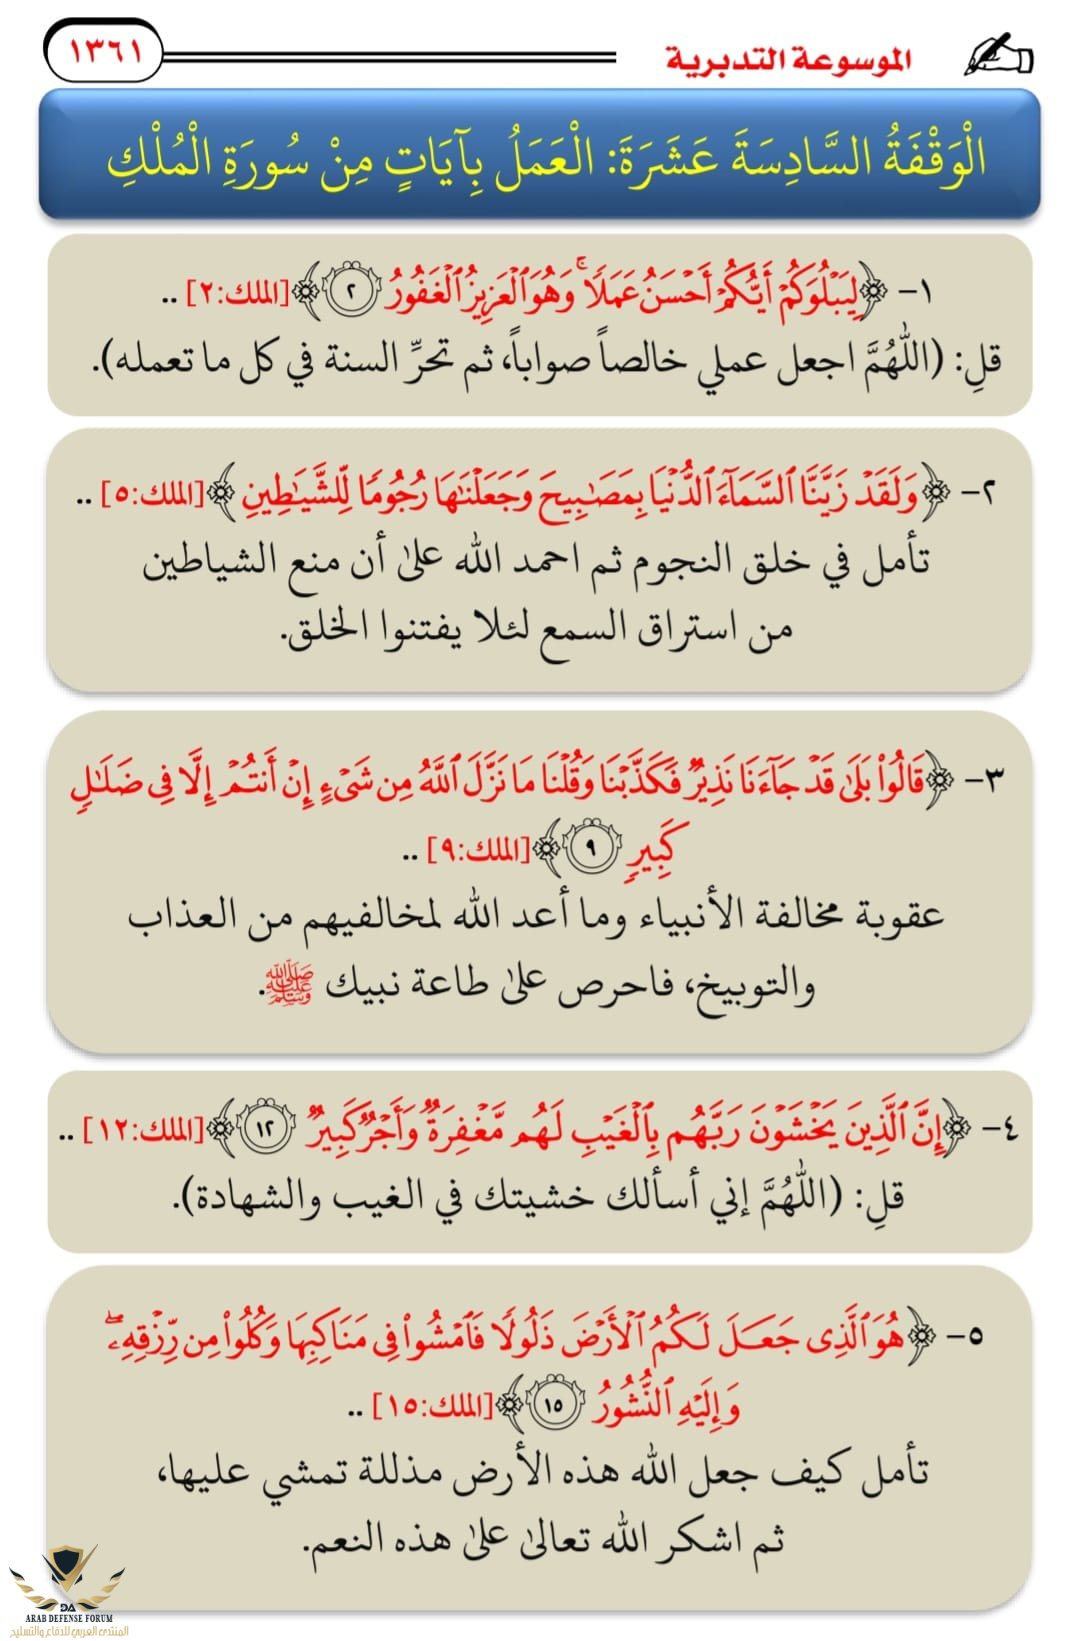 الموسوعة التدبرية
١٣٦١
الْوَقْفَةُ السَّادِسَةَ عَشَرَةَ: الْعَمَلُ بِآيَاتٍ مِنْ سُورَةِ الْمُلْكِ
١- ﴿لِيَبْلُوَكُمْ أَيُّكُمْ أَحْسَنُ عَمَلًا ۚ وَهُوَ ٱلْعَزِيزُ ٱلْغَفُورُ ٢﴾ [الملك:٢] ..
قلِ: (اللَّهُمَّ اجعل عملي خالصاً صواباً، ثم تحرِّ السنة في كل ما تعمله).
٢- ﴿وَلَقَدْ زَيَّنَّا ٱلسَّمَآءَ ٱلدُّنْيَا بِمَصَٰبِيحَ وَجَعَلْنَٰهَا رُجُومًا لِّلشَّيَٰطِينِ﴾ [الملك:٥] ..
تأمل في خلق النجوم ثم احمد الله على أن منع الشياطين
من استراق السمع لئلا يفتنوا الخلق.
٣- ﴿قَالُوا۟ بَلَىٰ قَدْ جَآءَنَا نَذِيرٌ فَكَذَّبْنَا وَقُلْنَا مَا نَزَّلَ ٱللَّهُ مِن شَىْءٍ إِنْ أَنتُمْ إِلَّا فِى ضَلَٰلٍ
كَبِيرٍ ٩﴾ [الملك:٩] ..
عقوبة مخالفة الأنبياء وما أعد الله لمخالفيهم من العذاب
والتوبيخ، فاحرص على طاعة نبيك ﷺ.
٤- ﴿إِنَّ ٱلَّذِينَ يَخْشَوْنَ رَبَّهُم بِٱلْغَيْبِ لَهُم مَّغْفِرَةٌ وَأَجْرٌ كَبِيرٌ ١٢﴾ [الملك:١٢] ..
قلِ: (اللَّهُمَّ إني أسألك خشيتك في الغيب والشهادة).
٥- ﴿هُوَ ٱلَّذِى جَعَلَ لَكُمُ ٱلْأَرْضَ ذَلُولًا فَٱمْشُوا۟ فِى مَنَاكِبِهَا وَكُلُوا۟ مِن رِّزْقِهِۦ ۖ
وَإِلَيْهِ ٱلنُّشُورُ ١٥﴾ [الملك:١٥] ..
تأمل كيف جعل الله هذه الأرض مذللة تمشي عليها،
ثم اشكر الله تعالى على هذه النعم.
DA
ARAB DEFENSE FORUM
المنتدى العربي للدفاع والتسليح